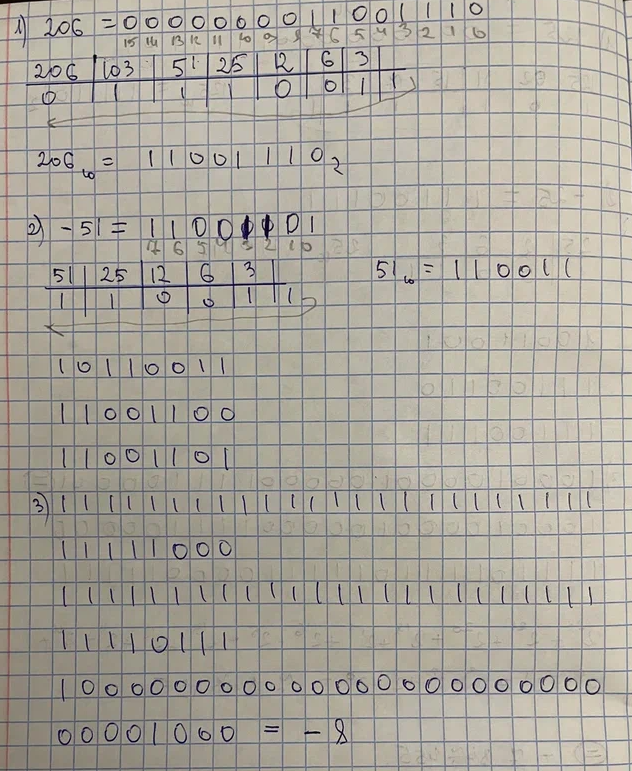 1) 206 = 0000000011001110
15 14 13 12 11 10 9 8 7 6 5 4 3 2 1 0
206 | 103 | 51 | 25 | 12 | 6 | 3 |
0 | 1 | 1 | 1 | 0 | 0 | 1 | 1
206₁₀ = 11001110₂
2) -51 = 11001101
7 6 5 4 3 2 1 0
51 | 25 | 12 | 6 | 3 |
1 | 1 | 0 | 0 | 1 | 1
51₁₀ = 110011
10110011
11001100
11001101
3) 111111111111111111111111
11111000
111111111111111111111111
11110111
100000000000000000000000
00001000 = -8